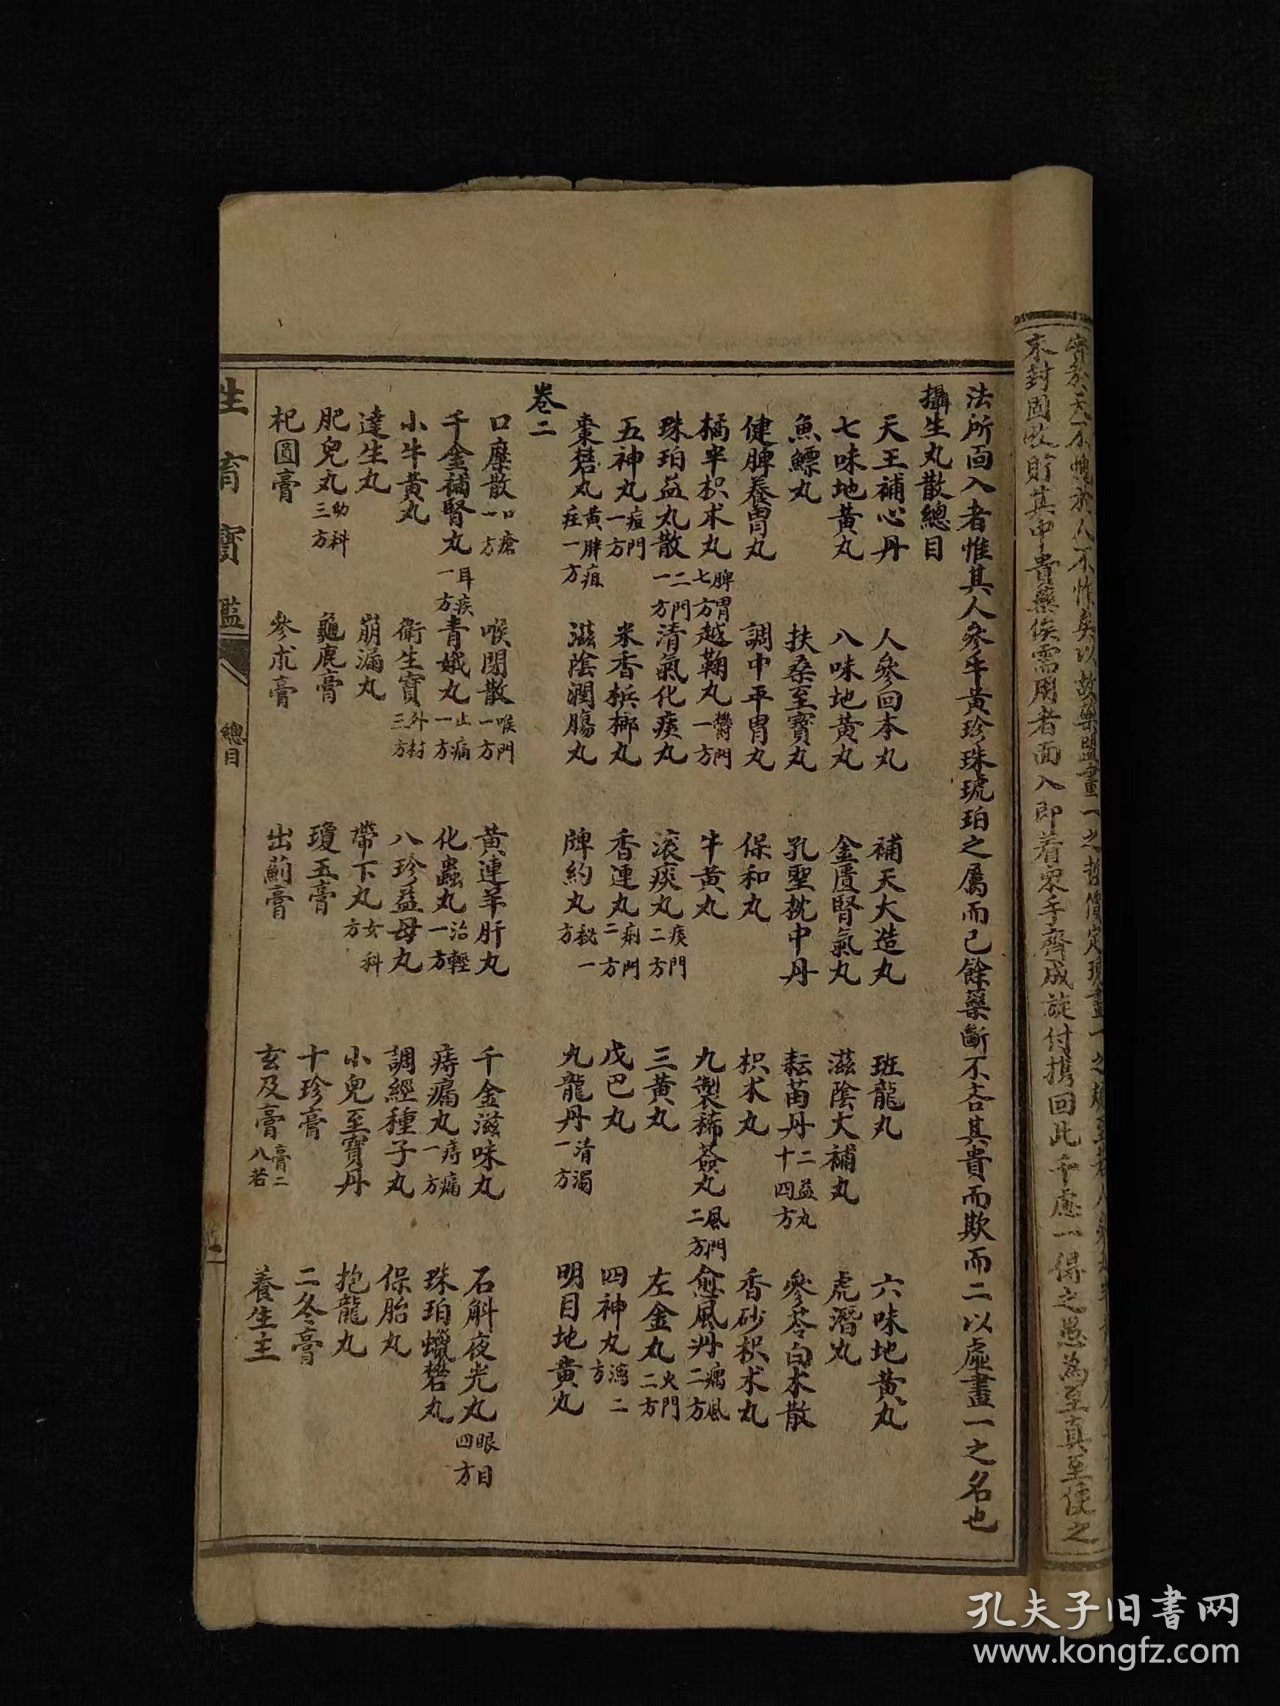 末封固收貯其中貴藥俟需用者面入即着眾手齊成旋付携回此千慮一得之愚為至真至便之
法所面入者惟其人參牛黃珍珠琥珀之屬而已餘藥斷不吝其貴而欺而二以虛畫一之名也
攝生丸散總目
天王補心丹 人參回本丸 補天大造丸 班龍丸 六味地黃丸
七味地黃丸 八味地黃丸 金匱腎氣丸 滋陰大補丸 虎潛丸
魚鰾丸 扶桑至寶丸 孔聖枕中丹 耘苗丹二益丸十四方 參苓白朮散
健脾養胃丸 調中平胃丸 保和丸 枳朮丸 香砂枳朮丸
橘半枳朮丸脾胃七方 越鞠丸鬱門一方 牛黃丸 九製豨薟丸風門二方 愈風丹癘風二方
珠珀益丸散二門一方 清氣化痰丸 滾痰丸痰門二方 三黃丸 左金丸火門二方
五神丸痘門一方 木香梹榔丸 香連丸痢門二方 戊己丸 四神丸瀉二方
棗礬丸黃胖疽症一方 滋陰潤腸丸 脾約丸秘一方 九龍丹清濁一方 明目地黃丸
卷二
口糜散口瘡一方 喉閉散喉門一方 黃連羊肝丸 千金滋味丸 石斛夜光丸眼目四方
千金補腎丸耳疾一方 青娥丸止痛一方 化蟲丸治輕一方 痔瘺丸痔痛一方 珠珀蠟礬丸
小牛黃丸 衛生寶外科三方 八珍益母丸 調經種子丸 保胎丸
達生丸 崩漏丸 帶下丸女科方 小兒至寶丹 抱龍丸
肥兒丸幼科三方 龜鹿膏 瓊玉膏 十珍膏 二冬膏
杞圓膏 參朮膏 出薊膏 玄及膏膏二八若 養生主
生育寶鑑 總目
孔夫子旧书网
www.kongfz.com